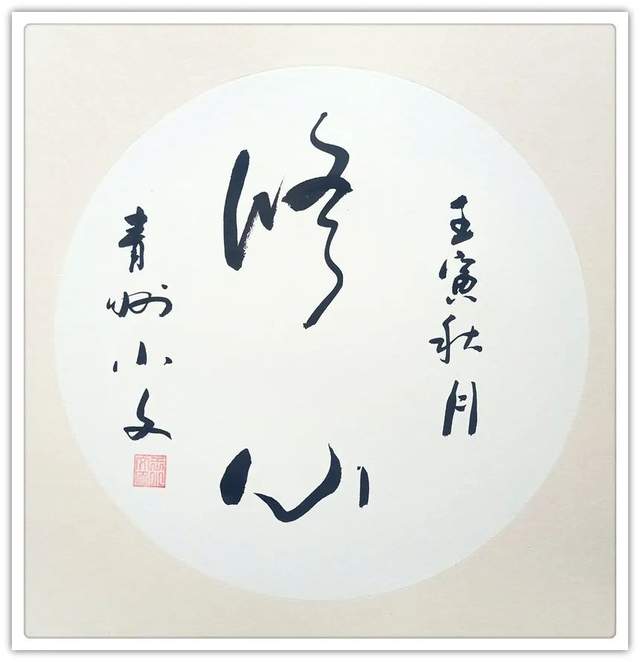 壬寅秋月
修心
青州小文